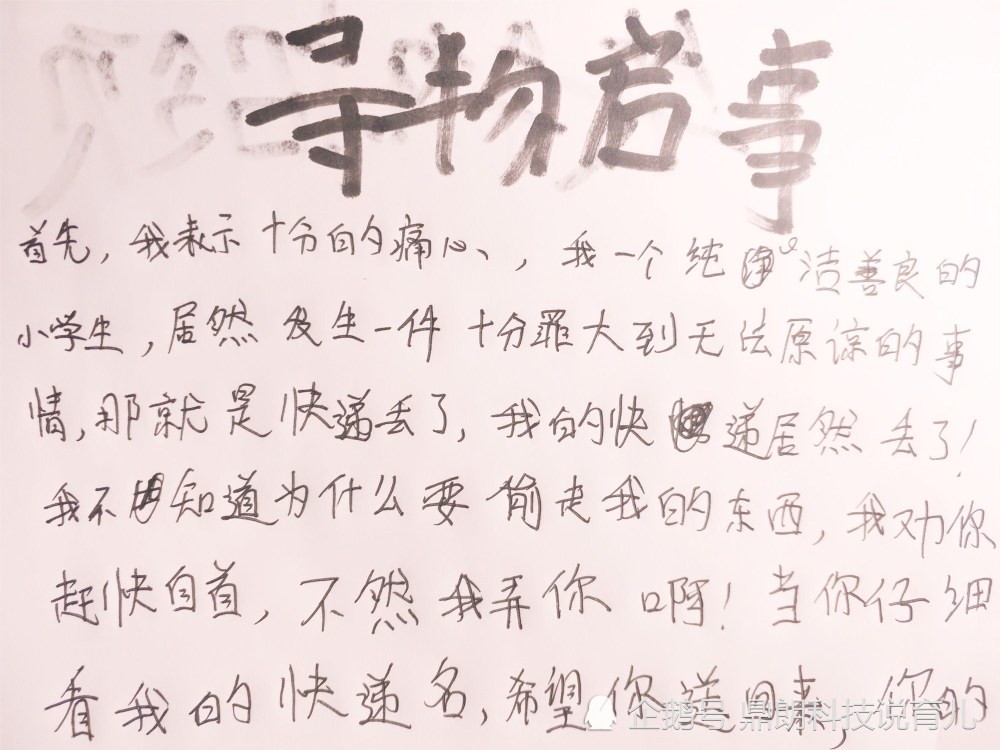 寻物启事
首先，我表示十分的痛心，我一个纯洁善良的
小学生，居然发生一件十分罪大到无法原谅的事
情，那就是快递丢了，我的快递居然丢了！
我不知道为什么要偷走我的东西，我劝你
赶快自首，不然我弄你啊！当你仔细
看我的快递名，希望你送回来，你的
企鹅号 鼎朗科技说育儿